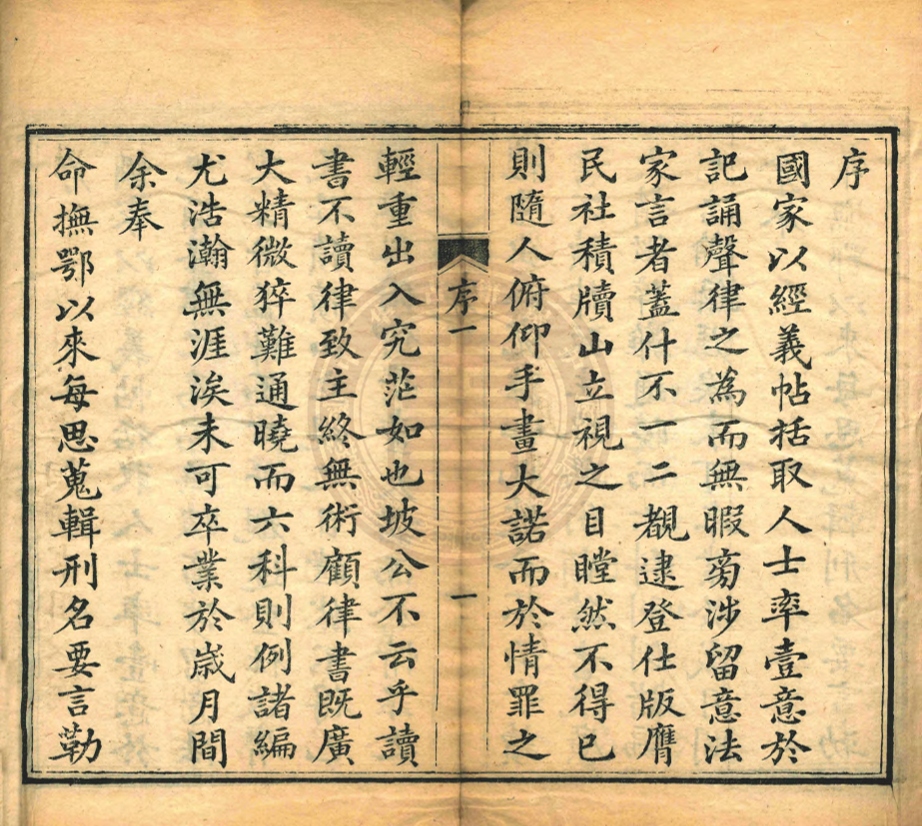 序
國家以經義帖括取人士率壹意於
記誦聲律之為而無暇旁涉留意法
家言者蓋什不一二覩逮登仕版膺
民社積牘山立視之目瞠然不得已
則隨人俯仰手畫大諾而於情罪之
序一
一
輕重出入究茫如也坡公不云乎讀
書不讀律致主終無術顧律書既廣
大精微猝難通曉而六科則例諸編
尤浩瀚無涯涘未可卒業於歲月間
余奉
命撫鄂以來每思蒐輯刑名要言勒